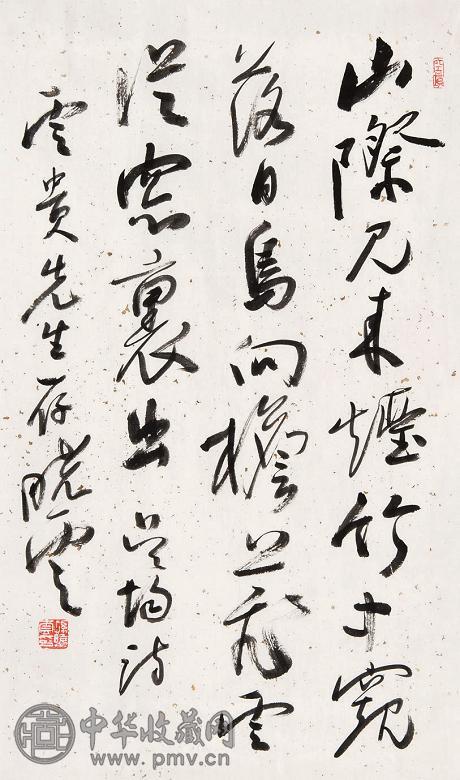 山際見来煙竹中窺
落日鳥向檐上飛雲
從窓裏出吳均詩
雲貴先生存曉雲
中华收藏网
www.pmv.cn